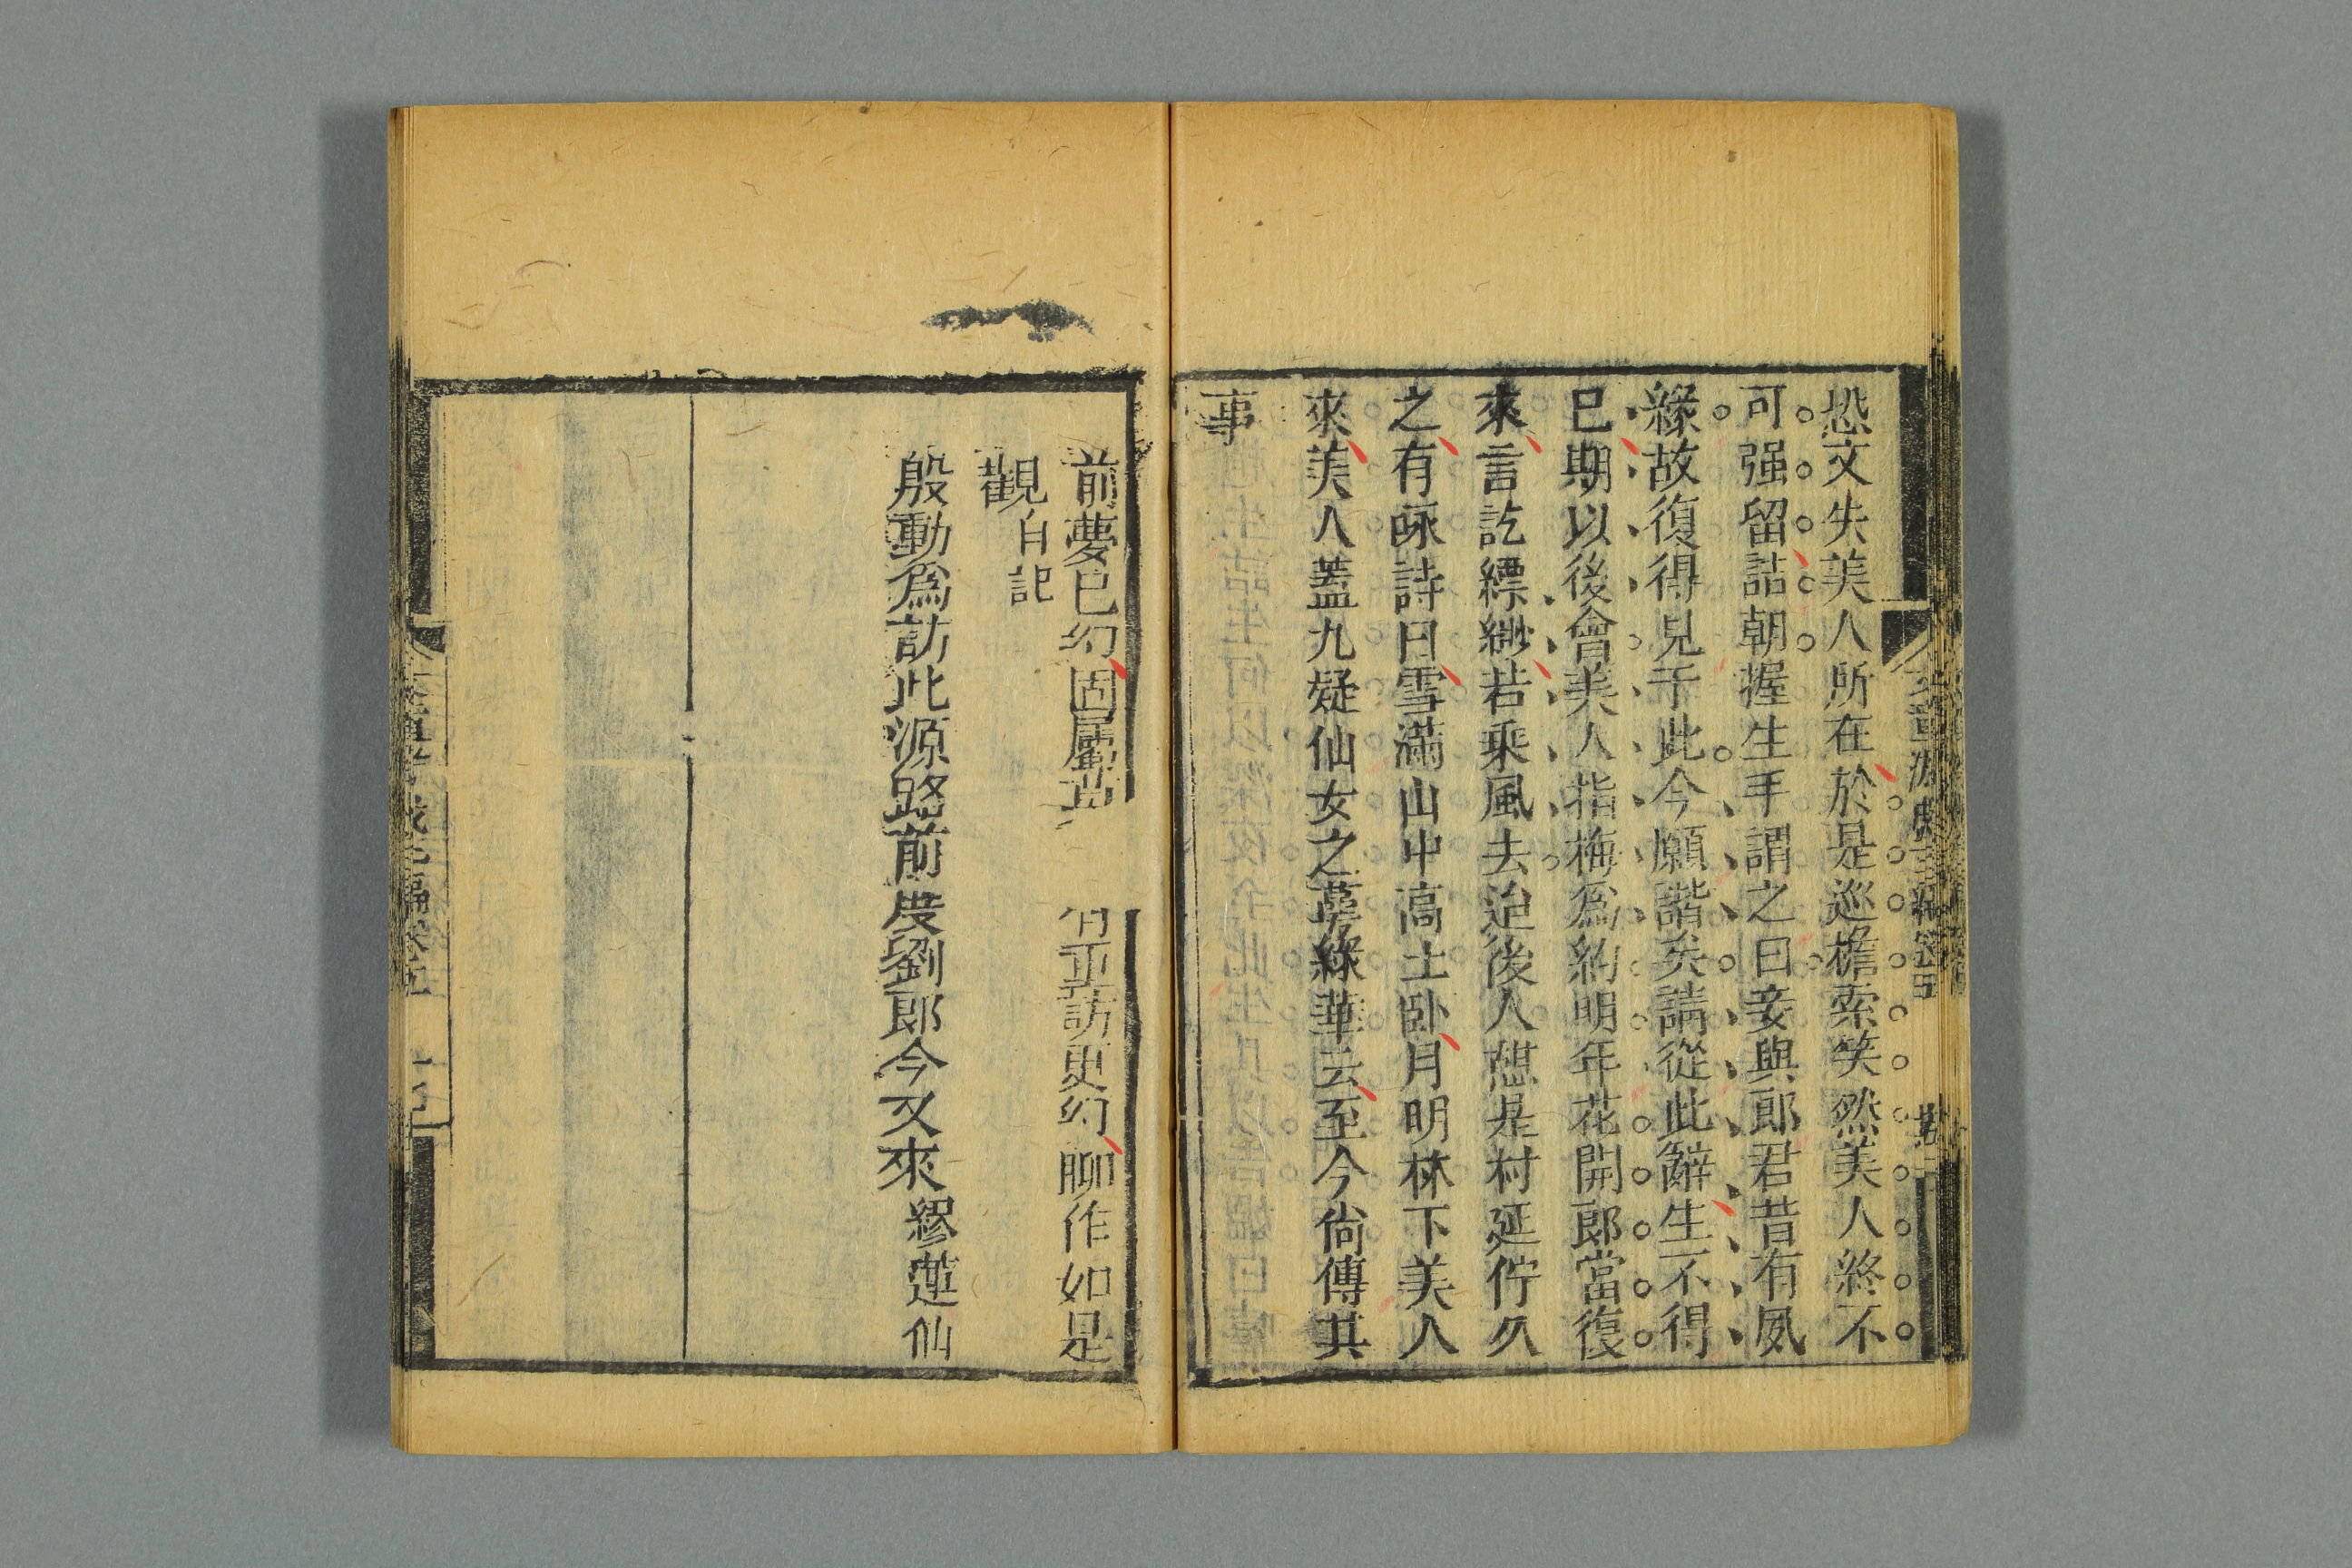 恐文失美人所在於是巡檐索笑然美人終不
可强留詰朝握生手謂之曰妾與郎君昔有夙
緣故復得見于此今願諧矣請從此辭生不得
已期以後會美人指梅爲約明年花開郎當復
來言訖縹緲若乘風去迨後人憇是村延佇久
之有咏詩曰雪滿山中高士卧月明林下美人
來美人蓋九疑仙女之萼綠華云至今尚傳其
事
前夢已幻固屬
正訪更幻聊作如是
觀自記
殷動爲訪此源路前度劉郎今又來繆蓮仙